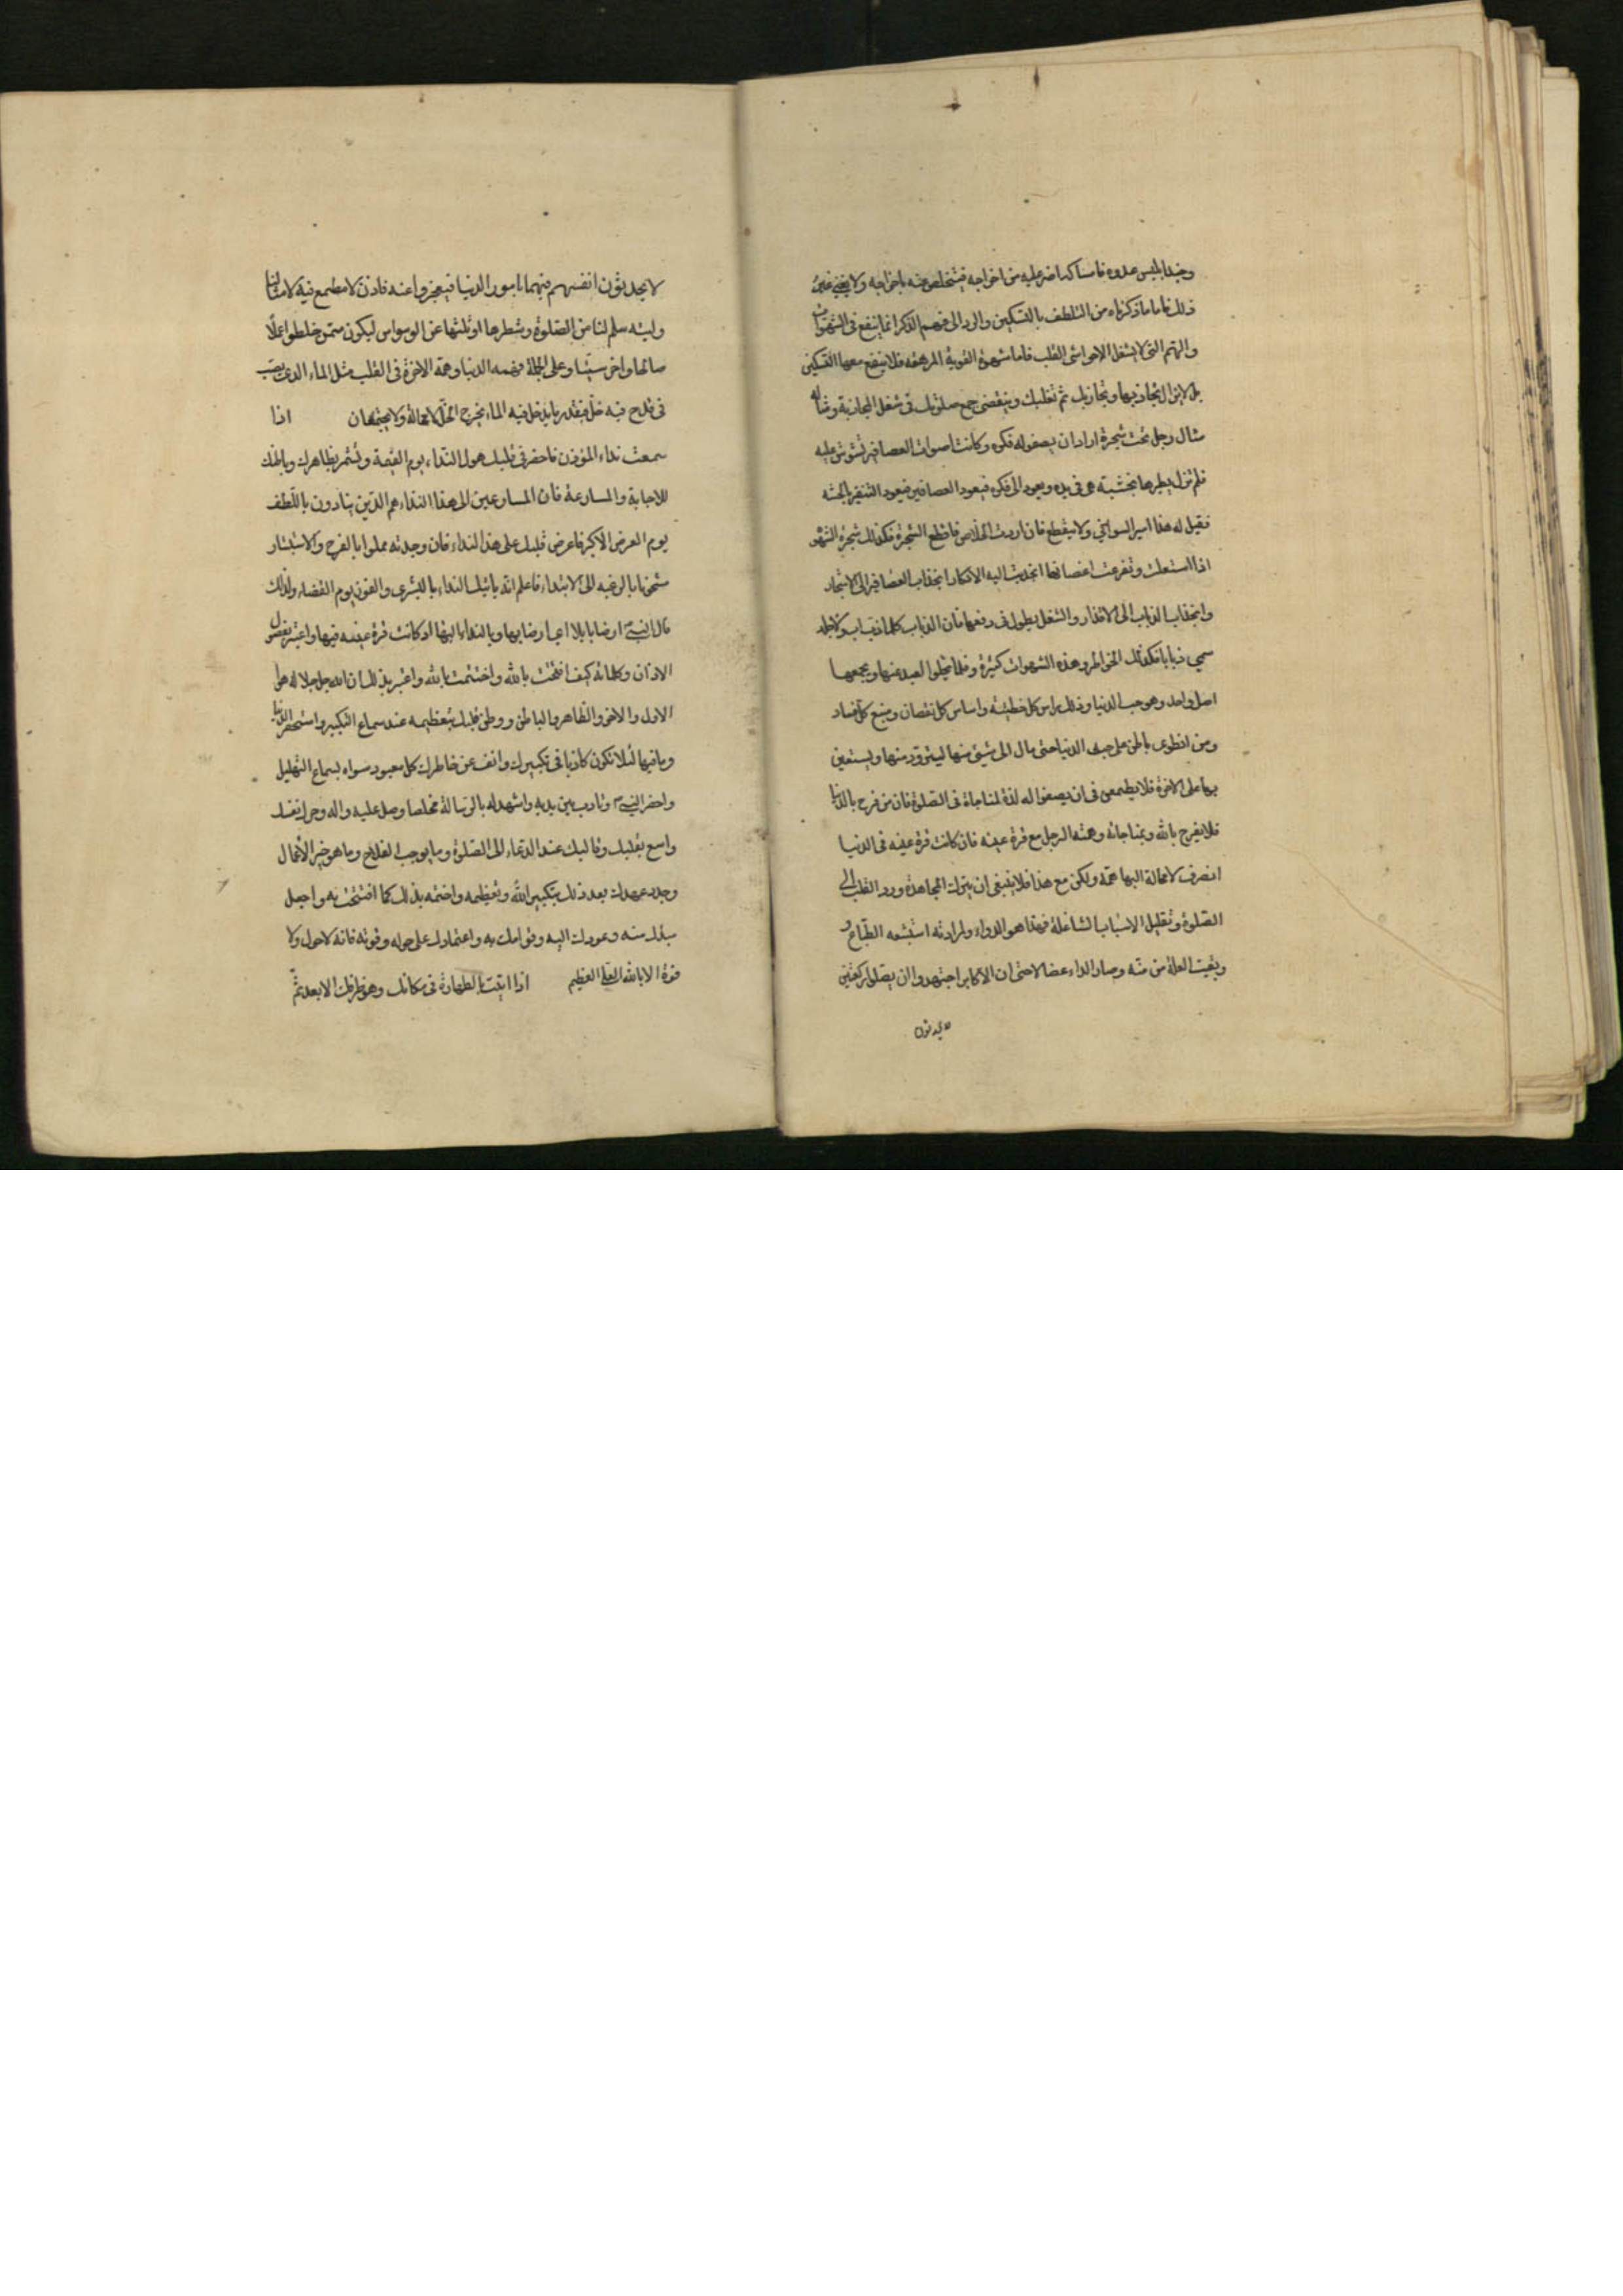 وجند ابليس عدوه فامساكه اضر عليه من اخراجه فيتخلص منه باخراجه ولا يغني عن
ذلك فاما ما ذكرناه من التلطف بالتسكين والرد الى فهم الذكر انما ينفع في الشهوات
والهمم التي لا يشغل الا حواشي القلب فاما شهوة القوية المرهقه فلا ينفع معها التسكين
بل لا يزال تجاذبها وتجاذبك ثم تغلبك وينقضي جميع صلوتك في شغل المجاذبة ومثاله
مثال رجل تحت شجرة اراد ان يصفو له فكره وكانت اصوات العصافير تشوش عليه
فلم تزل يطيرها بخشبة هي في يده ويعود الى فكره فيعود العصافير فيعود التنفير بالخشبه
فقيل له هذا اسير السواني ولا ينقطع فان اردت الخلاص فاقطع الشجرة فكذلك شجرة الشهوه
اذا استعلت وتفرعت اغصانها انجذبت اليه الافكار انجذاب العصافير الى الاشجار
وانجذاب الذباب الى الاقذار والشغل يطول في دفعها فان الذباب كلما ذب اب ولاجله
سمي ذبابا فكذلك الخواطر وهذه الشهوات كثيرة وقلما يخلوا العبد عنها ويجمعها
اصل واحد وهو حب الدنيا وذلك راس كل خطيئه واساس كل نقصان ومنبع كل فساد
ومن انطوى باطن على حب الدنيا حتى مال الى شيئ منها ليتزود منها ويستعين
بها على الاخرة فلا يطمعن في ان يصفوا له لذة المناجاة في الصلوة فان من فرح بالدنيا
فلا يفرح بالله وبمناجاته وهمة الرجل مع قرة عينه فان كانت قرة عينه في الدنيا
انصرف لا محالة اليها همه ولكن مع هذا فلا ينبغي ان يترك المجاهدة ورد القلب الى
الصلوة وتقليل الاسباب الشاغلة فهذا هو الدواء ولمرارته استبشعه الطباع و
وبقيت العلة من منه وصار الداء عضالا حتى ان الاكابر اجتهدوا ان يصلوا ركعتين
لا يحدثون
لا يحدثون انفسهم فيهما بامور الدنيا فيعجزوا عنه فاذن لا مطمع فيه لامثالنا
وليته سلم لنا من الصلوة وشطرها او ثلثها عن الوسواس ليكون ممن خلطوا عملا
صالحا واخر سيئا وعلى الجملة فهمه الدنيا وهمة الاخرة في القلب مثل الماء الذي يصب
في قدح فيه خل فبقدر ما يدخل فيه الماء يخرج الخل لا محالة ولا يجتمعان اذا
سمعت نداء المؤذن فاحضر في قلبك هول النداء يوم القيمة وتشمر بظاهرك وباطنك
للاجابة والمسارعة فان المسارعين الى هذا النداء هم الذين ينادون باللطف
يوم العرض الاكبر فاعرض قلبك على هذا النداء فان وجدته مملوا بالفرح والاستبشار
مشحونا بالرغبه الى الابتداء فاعلم انه ياتيك النداء بالبشرى والفوز يوم القضاء ولذلك
قال النبي ارضا يا بلال اي ارضا بها وبالنداء اليها اذ كانت قرة عينه فيها واعتبر بفصول
الاذان وكلماته كيف افتتحت بالله واختتمت بالله واعتبر بذلك ان الله جل جلاله هو
الاول والاخر والظاهر والباطن ووطن قلبك بتعظيمه عند سماع التكبير واستحقر الدنيا
وما فيها لئلا تكون كاذبا في تكبيرك وانف عن خاطرك كل معبود سواه بسماع التهليل
واحضر النبي وتادب بين يديه واشهد له بالرسالة مخلصا وصل عليه واله وحرك نفسك
واسع بقلبك وقالبك عند الدعاء الى الصلوة وما يوجب الفلاح وما هو خير الاعمال
وجدد عهدك بعد ذلك بتكبير الله وتعظيمه واختمه بذلك كما افتتحت به واجعل
مبدأك منه وعودك اليه وقوامك به واعتمادك على حوله وقوته فانه لا حول ولا
قوة الا بالله العلي العظيم اذا اتيت بالطهارة في مكانك وهو ظرفك الابعد ثم